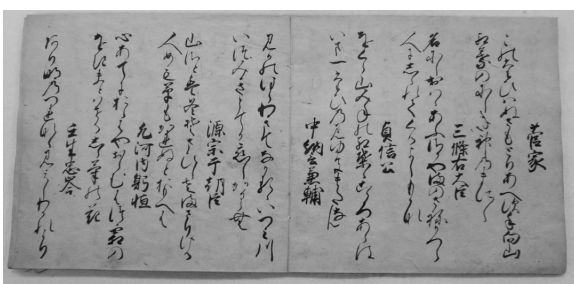 菅家
このたひはぬさもとりあへす手向山
紅葉のにしき神のまに〳〵
三條右大臣
名にしおはゝあふ坂やまのさねかつら
人にしられてくるよしもかな
貞信公
をくら山みねの紅葉々こゝろあらは
いま一たひのみゆきまたなん
中納言兼輔
みかのはらわきてなかるゝいつみ川
いつみきとてか恋しかるらむ
源宗于朝臣
山さとは冬そさひしさまさりける
人めも草もかれぬとおもへは
凡河内躬恒
心あてにおらはやおらむはつ霜の
をきまとはせるしら菊の花
壬生忠岑
あり明のつれなく見えしわかれより